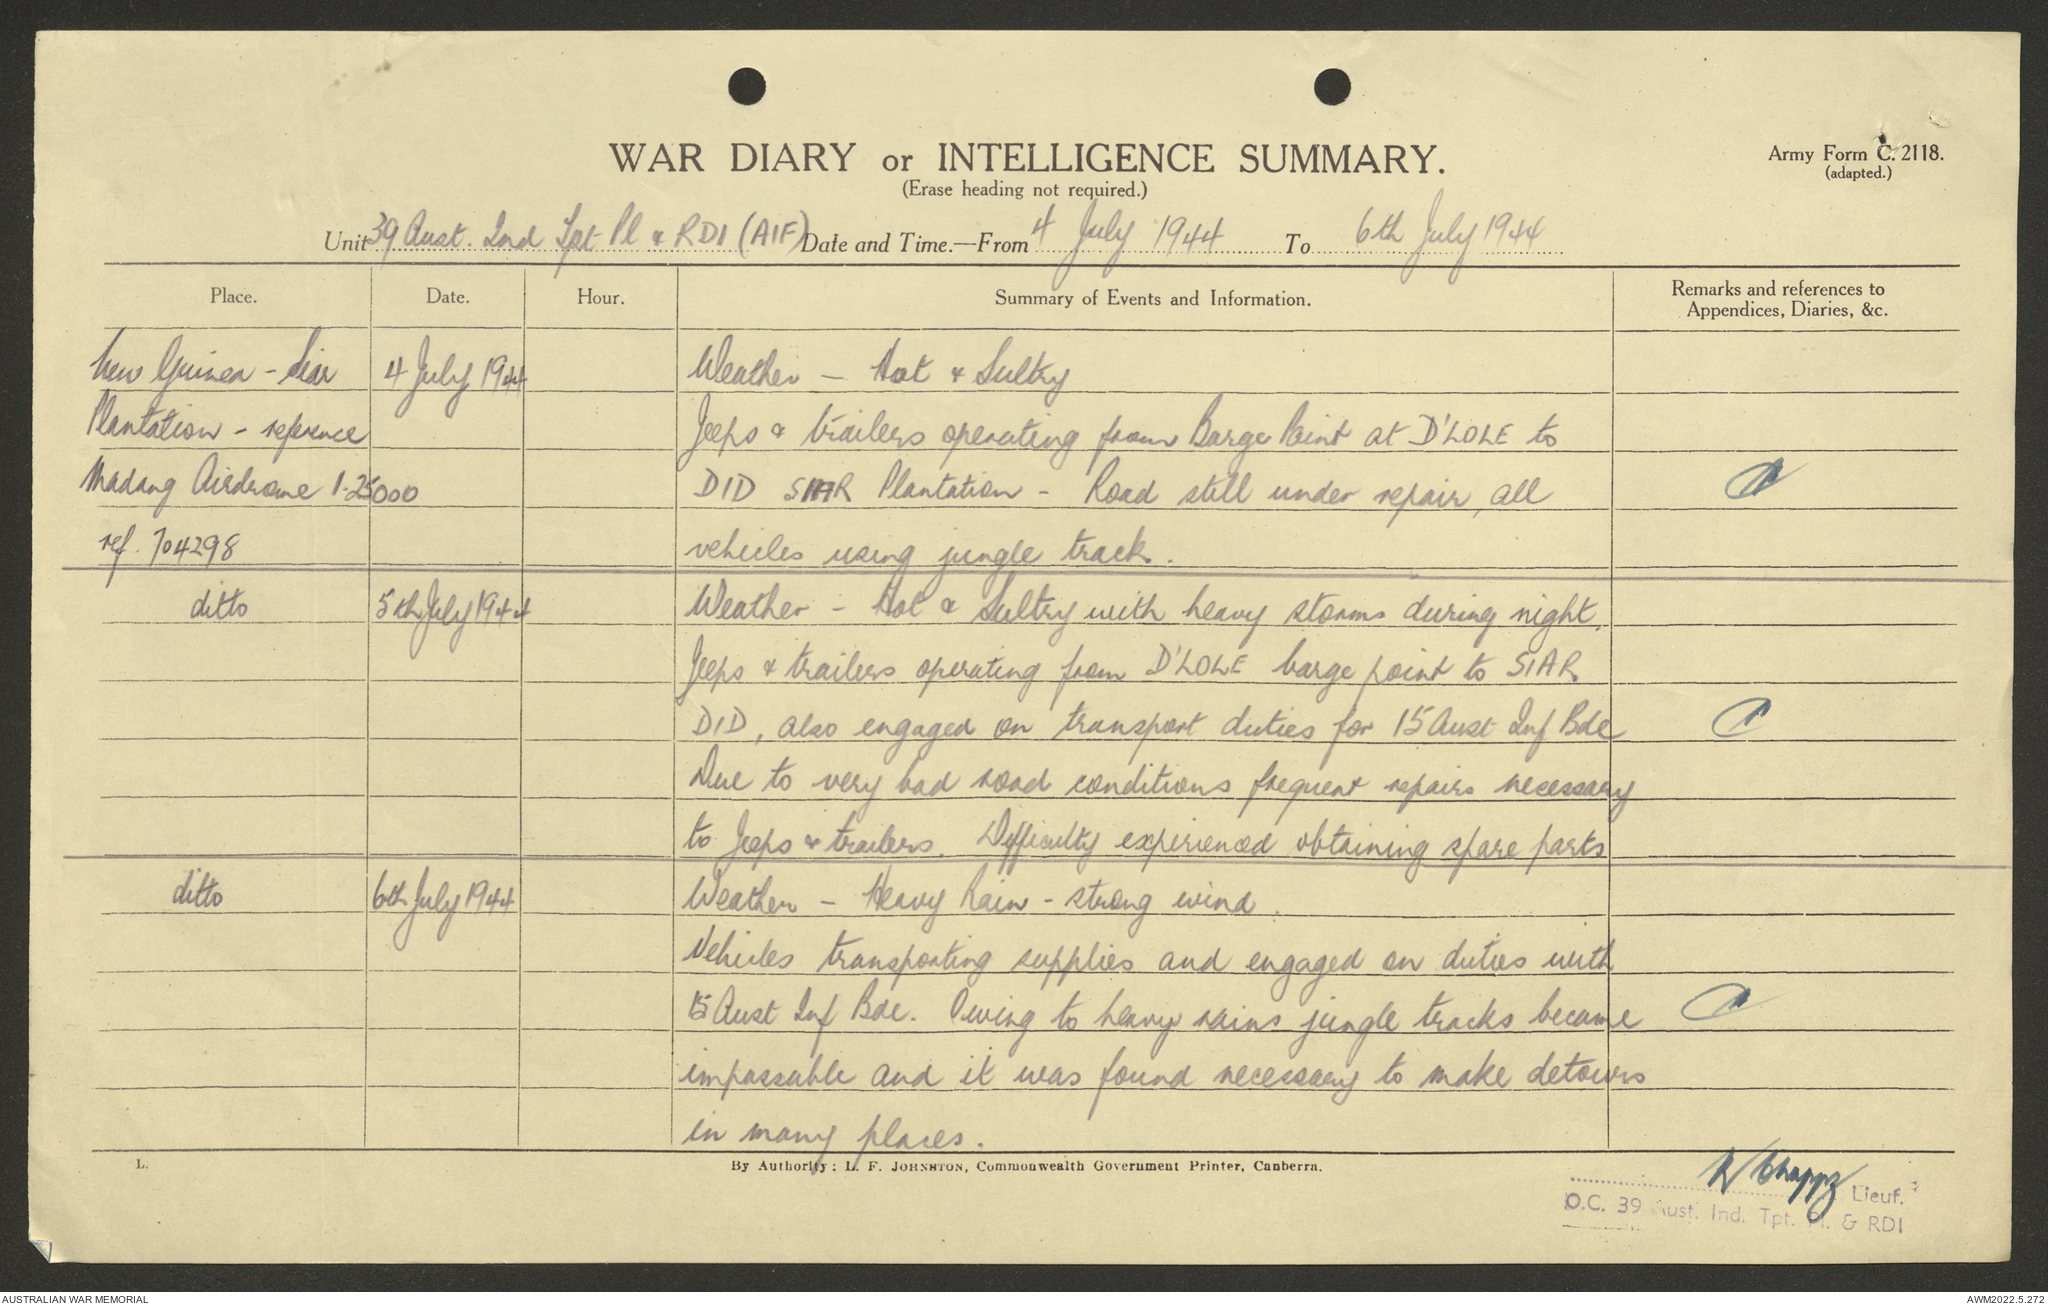 WAR DIARY or INTELLIGENCE SUMMARY.
(Erase heading not required.)
Army Form C. 2118.
(adapted.)
Unit 39 Aust. Ind Tpt Pl & RDI (AIF) Date and Time.—From 4 July 1944 To 6th July 1944
Place. Date. Hour. Summary of Events and Information. Remarks and references to
Appendices, Diaries, &c.
New Guinea - Siar 4 July 1944 Weather - Hot & Sultry
Plantation - reference Jeeps & trailers operating from Barge Point at D'LOLE to
Madang Airdrome 1.25000 DID SIAR Plantation - Road still under repair, all
ref. 704298 vehicles using jungle track.
ditto 5th July 1944 Weather - Hot & Sultry with heavy storms during night.
Jeeps & trailers operating from D'LOLE barge point to SIAR
DID, also engaged on transport duties for 15 Aust Inf Bde
Due to very bad road conditions frequent repairs necessary
to Jeeps & trailers. Difficulty experienced obtaining spare parts
ditto 6th July 1944 Weather - Heavy Rain - strong wind.
Vehicles transporting supplies and engaged on duties with
15 Aust Inf Bde. Owing to heavy rains jungle tracks became
impassable and it was found necessary to make detours
in many places.
L.
By Authority: L. F. JOHNSTON, Commonwealth Government Printer, Canberra.
Lieut.
O.C. 39 Aust. Ind. Tpt. Pl. & RDI
AUSTRALIAN WAR MEMORIAL
AWM2022.5.272